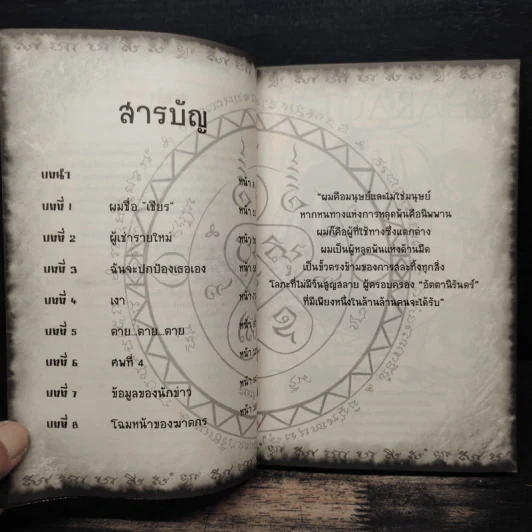 สารบัญ
บทนำ หน้า
บทที่ 1 ผมชื่อ "เซียร" หน้า
บทที่ 2 ผู้เช่ารายใหม่ หน้า
บทที่ 3 ฉันจะปกป้องเธอเอง หน้า
บทที่ 4 เงา หน้า
บทที่ 5 ตาย...ตาย...ตาย หน้า
บทที่ 6 ศพที่ 4 หน้า
บทที่ 7 ข้อมูลของนักข่าว หน้า
บทที่ 8 โฉมหน้าของฆาตกร หน้า
"ผมคือมนุษย์และไม่ใช่มนุษย์
หากหนทางแห่งการหลุดพ้นคือนิพพาน
ผมก็คือผู้ที่ใช้ทางซึ่งแตกต่าง
ผมเป็นผู้หลุดพ้นแห่งด้านมืด
เป็นขั้วตรงข้ามของการสละทิ้งทุกสิ่ง
โลภะที่ไม่มีวันสูญสลาย ผู้ครอบครอง "อัตตานิรันดร์"
ที่มีเพียงหนึ่งในล้านล้านคนจะได้รับ"